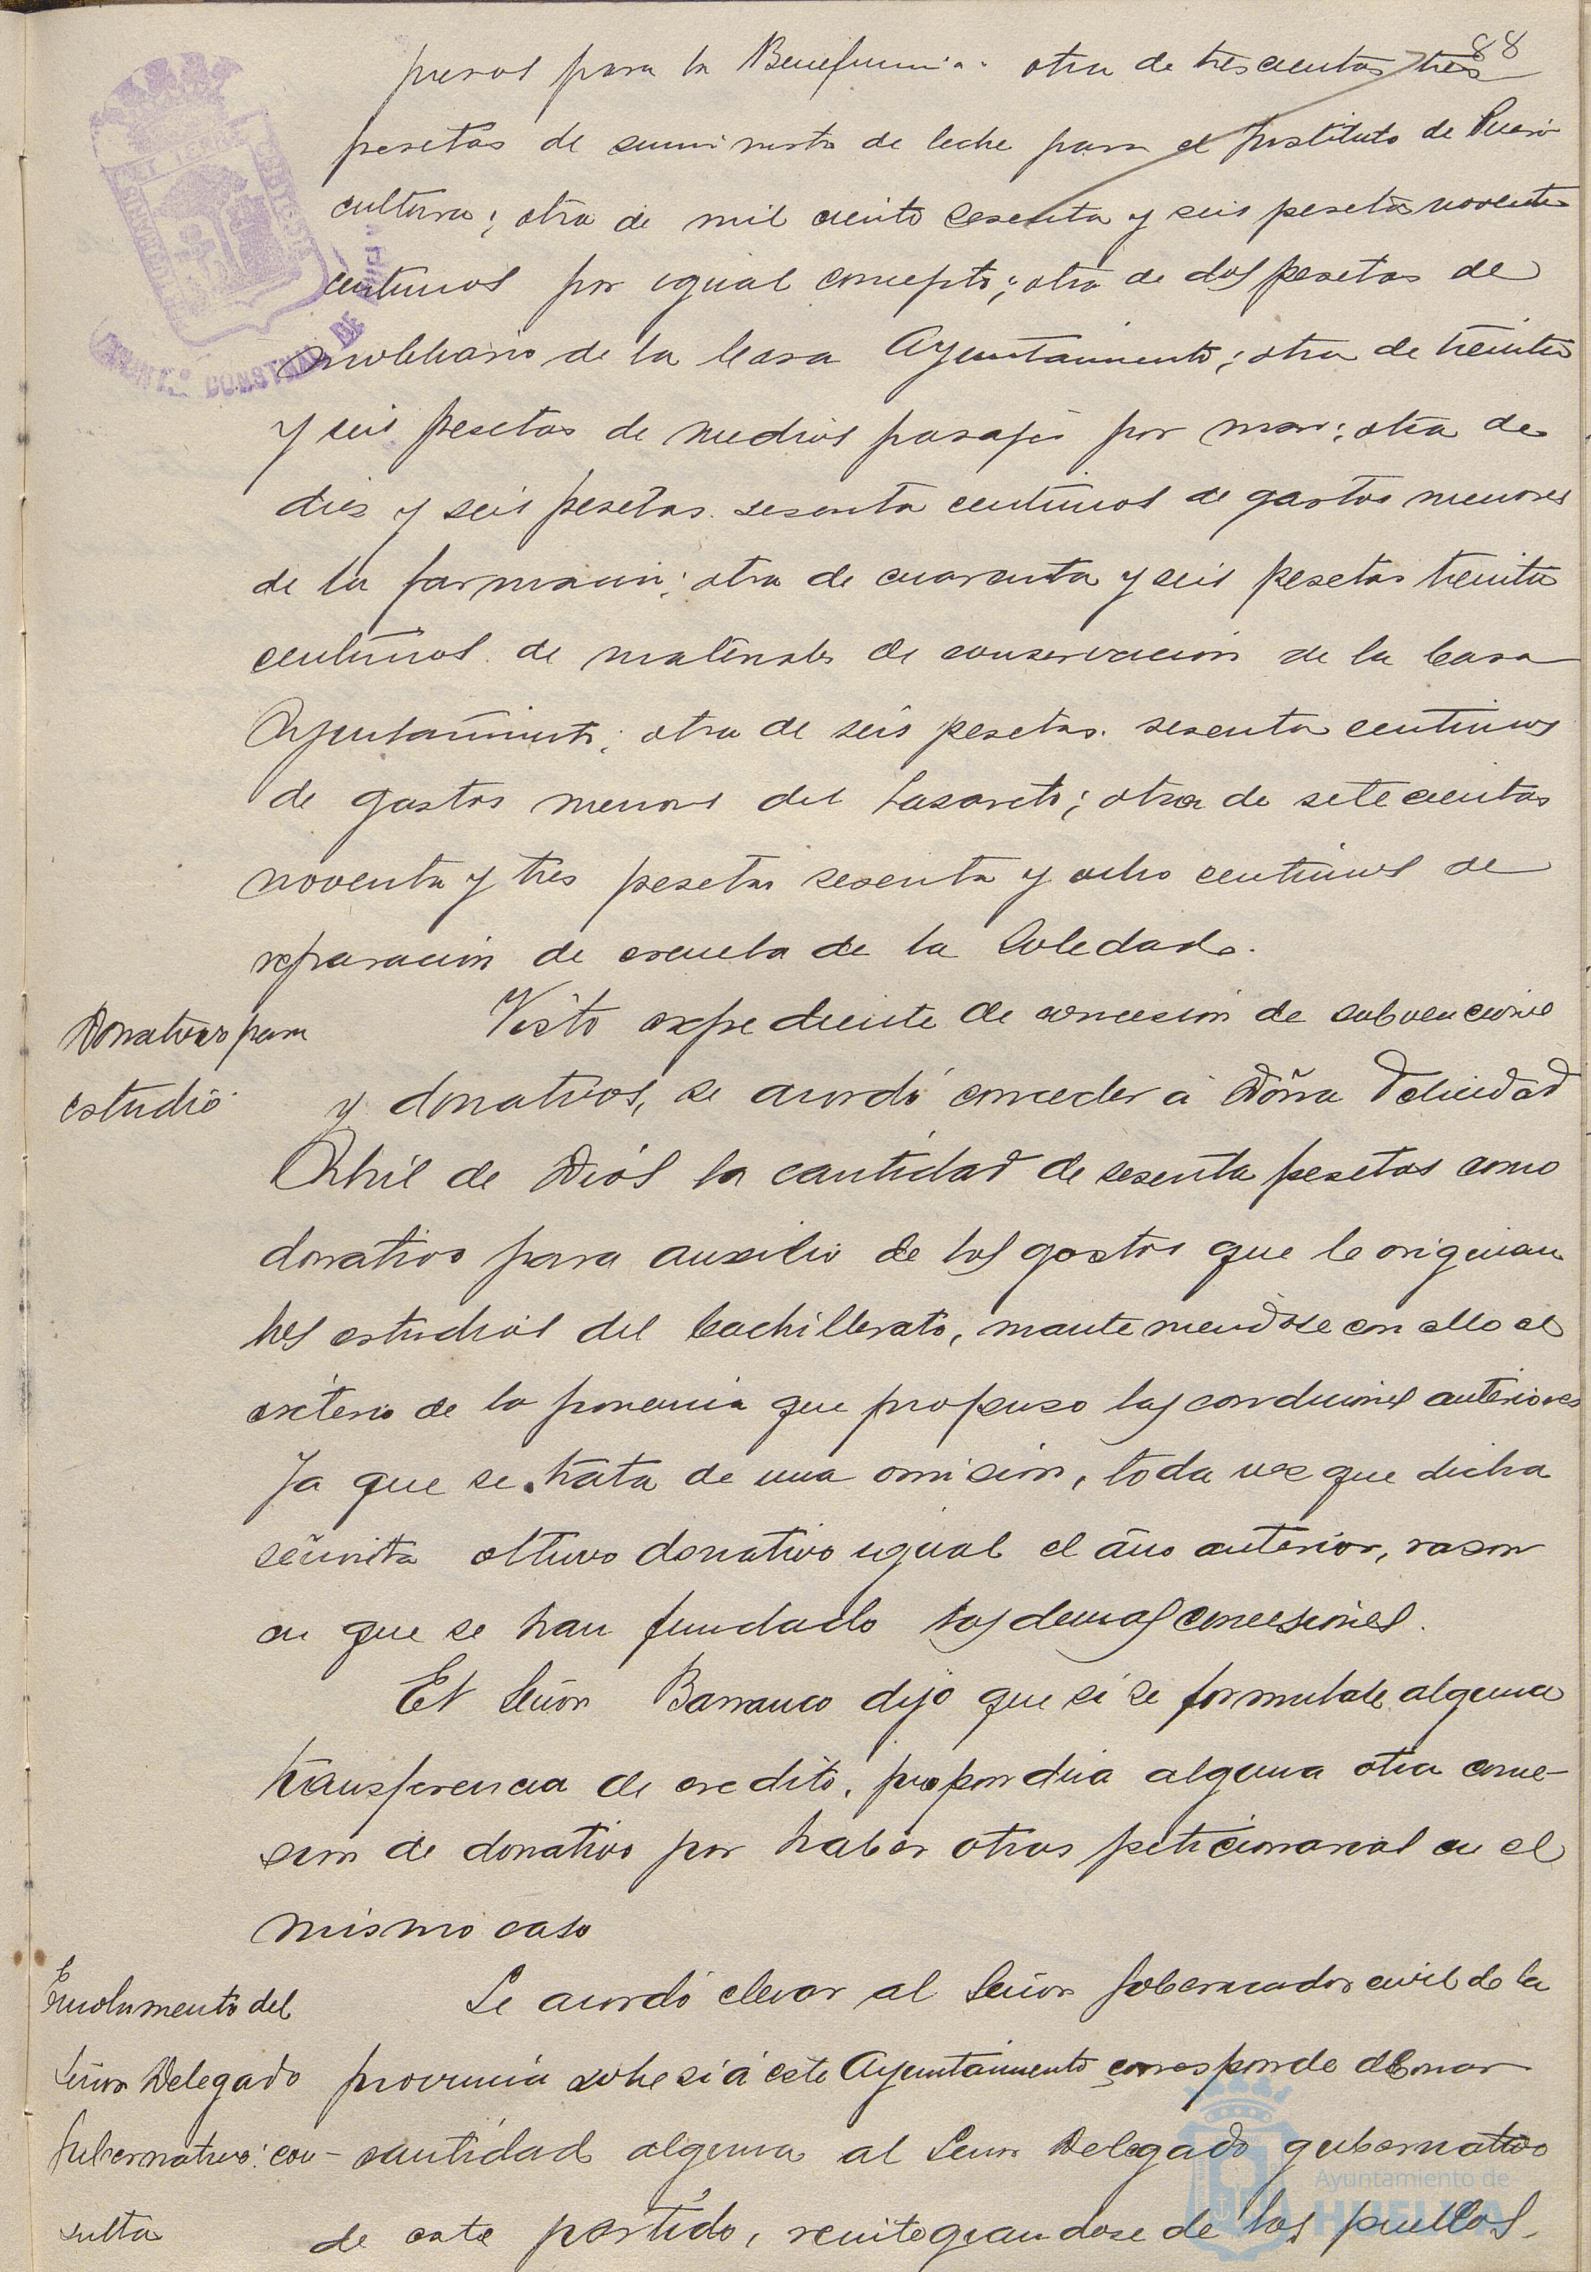 88
presos para la Beneficencia; otra de trescientas tres
pesetas de suministro de leche para el Instituto de Pueri
cultura; otra de mil ciento sesenta y seis pesetas noventa
centimos por igual concepto; otra de dos pesetas de
mobiliario de la Casa Ayuntamiento; otra de treinta
y seis pesetas de medios pasajes por mar; otra de
diez y seis pesetas sesenta centimos de gastos menores
de la farmacia; otra de cuarenta y seis pesetas treinta
centimos de materiales de conservacion de la Casa
Ayuntamiento; otra de seis pesetas sesenta centimos
de gastos menores del Lazareto; otra de setecientas
noventa y tres pesetas sesenta y ocho centimos de
reparacion de escuela de la Soledad.
Donativos para
estudio.
Visto expediente de concesion de subvenciones
y donativos, se acordó conceder á Doña Felicidad
Abril de Dios la cantidad de sesenta pesetas como
donativo para auxilio de los gastos que le originan
los estudios del Bachillerato, manteniendose con ello el
criterio de la ponencia que propuso las condiciones anteriores
ya que se trata de una omision, toda vez que dicha
señorita obtuvo donativo igual el año anterior, razon
en que se han fundado las demas concesiones.
El Señor Barranco dijo que si se formulase alguna
transferencia de credito, propondria alguna otra conce-
sion de donativo por haber otros peticionarios en el
mismo caso
Emolumento del
Señor Delegado
Gubernativo: con-
sulta
Se acordó elevar al Señor Gobernador civil de la
provincia sobre si á este Ayuntamiento corresponde abonar
cantidad alguna al Señor Delegado gubernativo
de este partido, reintegrandose de los pueblos.
AYUNT.º CONSTNAL DE HUELVA
Ayuntamiento de
HUELVA